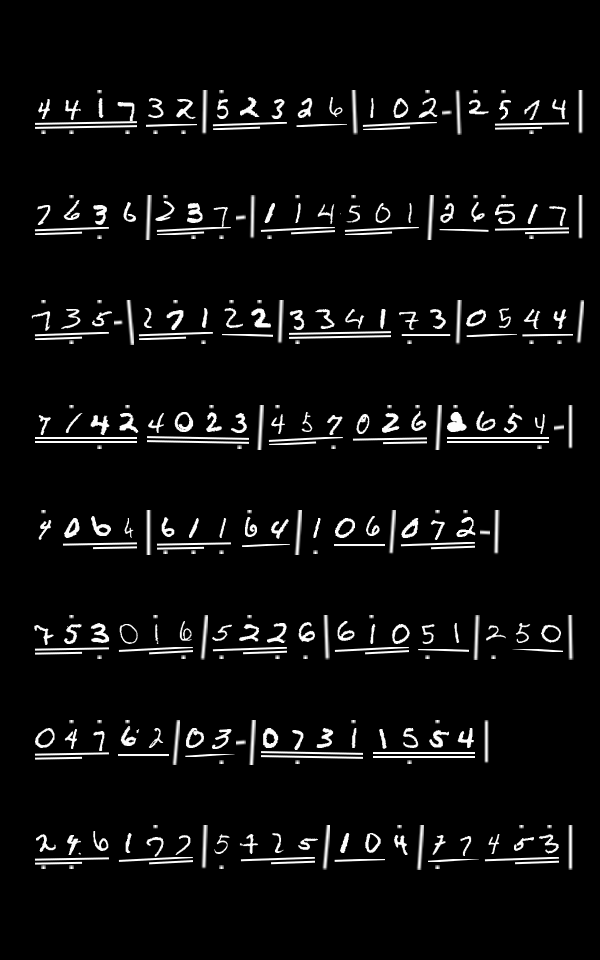 4 4 1 7 3 2 | 5 2 3 2 6 | 1 0 2 - | 2 5 7 4 |
7 6 3 6 | 2 3 7 - | 1 1 4 5 0 1 | 2 6 5 1 7 |
7 3 5 - | 2 7 1 2 2 | 3 3 4 1 7 3 | 0 5 4 4 |
7 1 4 2 4 0 2 3 | 4 5 7 0 2 6 | 2 6 5 4 - |
4 0 6 4 | 6 1 1 6 4 | 1 0 6 | 0 7 2 - |
7 5 3 0 1 6 | 5 2 2 6 | 6 1 0 5 1 | 2 5 0 |
0 4 7 6 2 | 0 3 - | 0 7 3 1 1 5 5 4 |
2 4 6 1 7 7 | 5 7 2 5 | 1 0 4 | 7 7 4 5 3 |